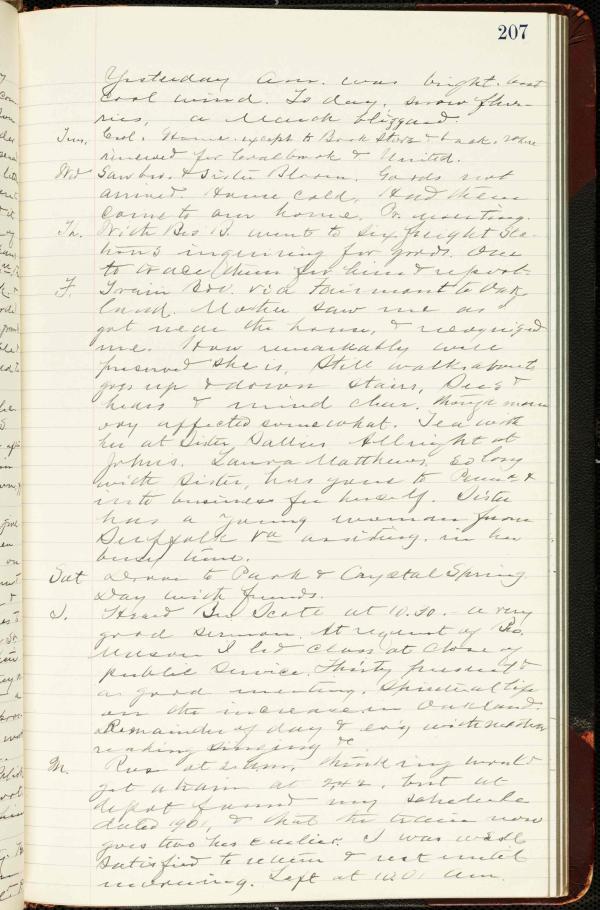 207
Yesterday a.m. was bright but
cool wind. To day, snow flur-
ries, a March blizzard.
Tues. Cool. Home except to Book Store & back, where
renewed for Localbook & United.
Wd Saw bro. & Sister Bloom. Goods not
arrived. House cold. Had them
come to our home. Pr. meeting.
Th. With Bro B. went to six freight sta-
tions inquiring for goods. One
to trace them for him & report.
F. Train via Fairmont to Oak-
land. Mother saw me as I
got near the house, & recognized
me. How remarkably well
preserved she is. Still walks about
goes up & down stairs, Sees &
hears & mind clear, though mem-
ory affected somewhat. Tea with
her at Sister Sallies. All night at
John's. Laura Matthews, so long
with Sister, has gone to &
into business for herself. Sister
has a young woman from
Suffolk Va assisting in her
busy time.
Sat Drove to Park & Crystal Spring
Day with friends.
S. Heard Bro Scott at 10.30. - a very
good sermon. At request of Bro.
Mason I led class at close of
public service. Thirty present &
a good meeting. Spiritual life
on the increase in Oakland.
Remainder of day & ev'g with Mother
reading singing &c.
M. Rose at 2 a.m., thinking would
get a train at 2.42, but at
depot found my schedule
dated 1901, & that the train now
goes two hrs earlier. I was well
satisfied to return & rest until
morning. Left at 10.01 a.m.